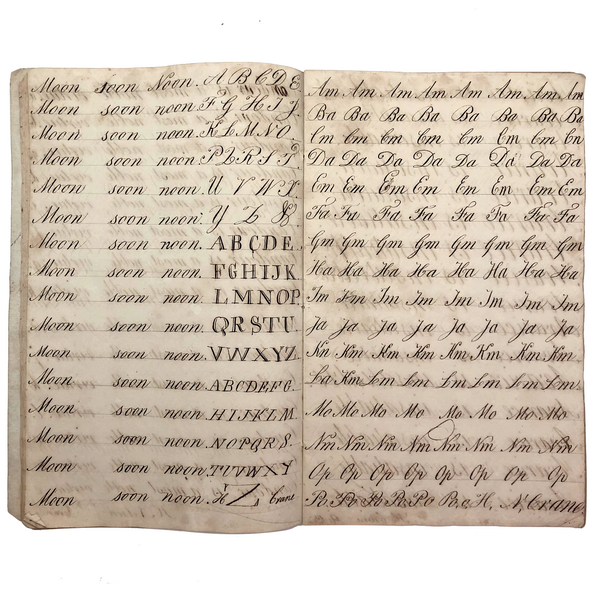 Moon soon Noon. A B C D E
Moon soon noon. F G H I J.
Moon soon noon. K L M N O
Moon soon noon. P Q R S T.
Moon soon noon. U V W X.
Moon soon noon. Y Z &
Moon soon noon. A B C D E.
Moon soon noon. F G H I J K.
Moon soon noon. L M N O P.
Moon soon noon. Q R S T U.
Moon soon noon. V W X Y Z.
Moon soon noon. A B C D E F G.
Moon soon noon. H I J K L M.
Moon soon noon. N O P Q R S.
Moon soon noon. T U V W X Y
Moon soon noon. H Z Crane
Am Am Am Am Am Am Am Am
Ba Ba Ba Ba Ba Ba Ba Ba
Cm Cm Cm Cm Cm Cm Cm Cn
Da Da Da Da Da Da Da Da
Em Em Em Em Em Em Em Em
Fa Fa Fa Fa Fa Fa Fa Fa
Gm Gm Gm Gm Gm Gm Gm Gm
Ha Ha Ha Ha Ha Ha Ha Ha
Im Im Im Im Im Im Im Im
Ja Ja Ja Ja Ja Ja Ja Ja
Kn Km Km Km Km Km Km Km
La Km Lm Lm Lm Lm Lm Lm
Mo Mo Mo Mo Mo Mo Mo Mo
Nm Nm Nm Nm Nm Nm Nm Nm
Op Op Op Op Op Op Op Op
Po Po Po Po Po Po H. N. Crane